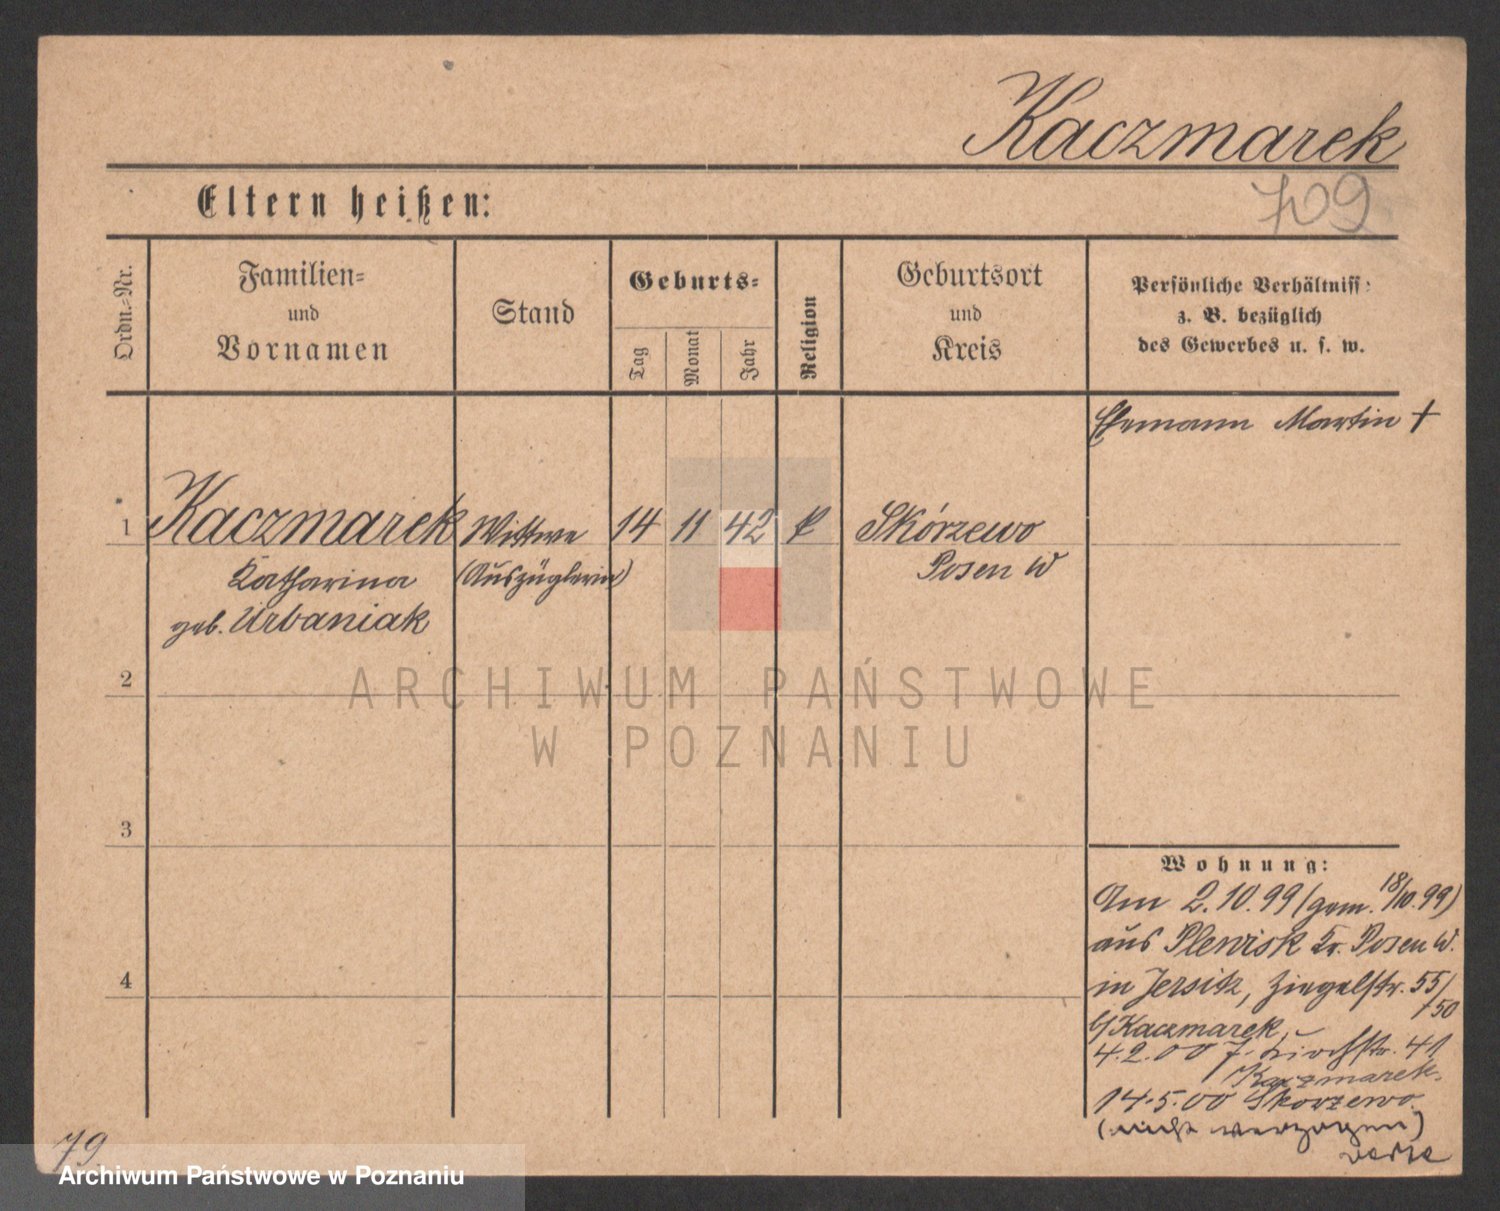 Kaczmarek
709
Eltern heißen:
Ordn.-Nr.
Familien-
und
Vornamen
Stand
Geburts-
Tag
Monat
Jahr
Religion
Geburtsort
und
Kreis
Persönliche Verhältniss:
z. B. bezüglich
des Gewerbes u. s. w.
Ehemann Martin +
1 Kaczmarek Wittwe 14 11 42 k Skórzewo
Katharina (Auszüglerin) Posen W
geb. Urbaniak
2
3
4
ARCHIWUM PAŃSTWOWE
W POZNANIU
Wohnung:
Am 2.10.99 (gem. 18/10.99)
aus Plewisk Kr. Posen W.
in Jersitz, Ziegelstr. 55/
50
b/Kaczmarek
4.2.00 J. Kirchstr. 41
Kaczmarek.
14.5.00 Skorzewo.
(nicht verzogen)
79
Archiwum Państwowe w Poznaniu